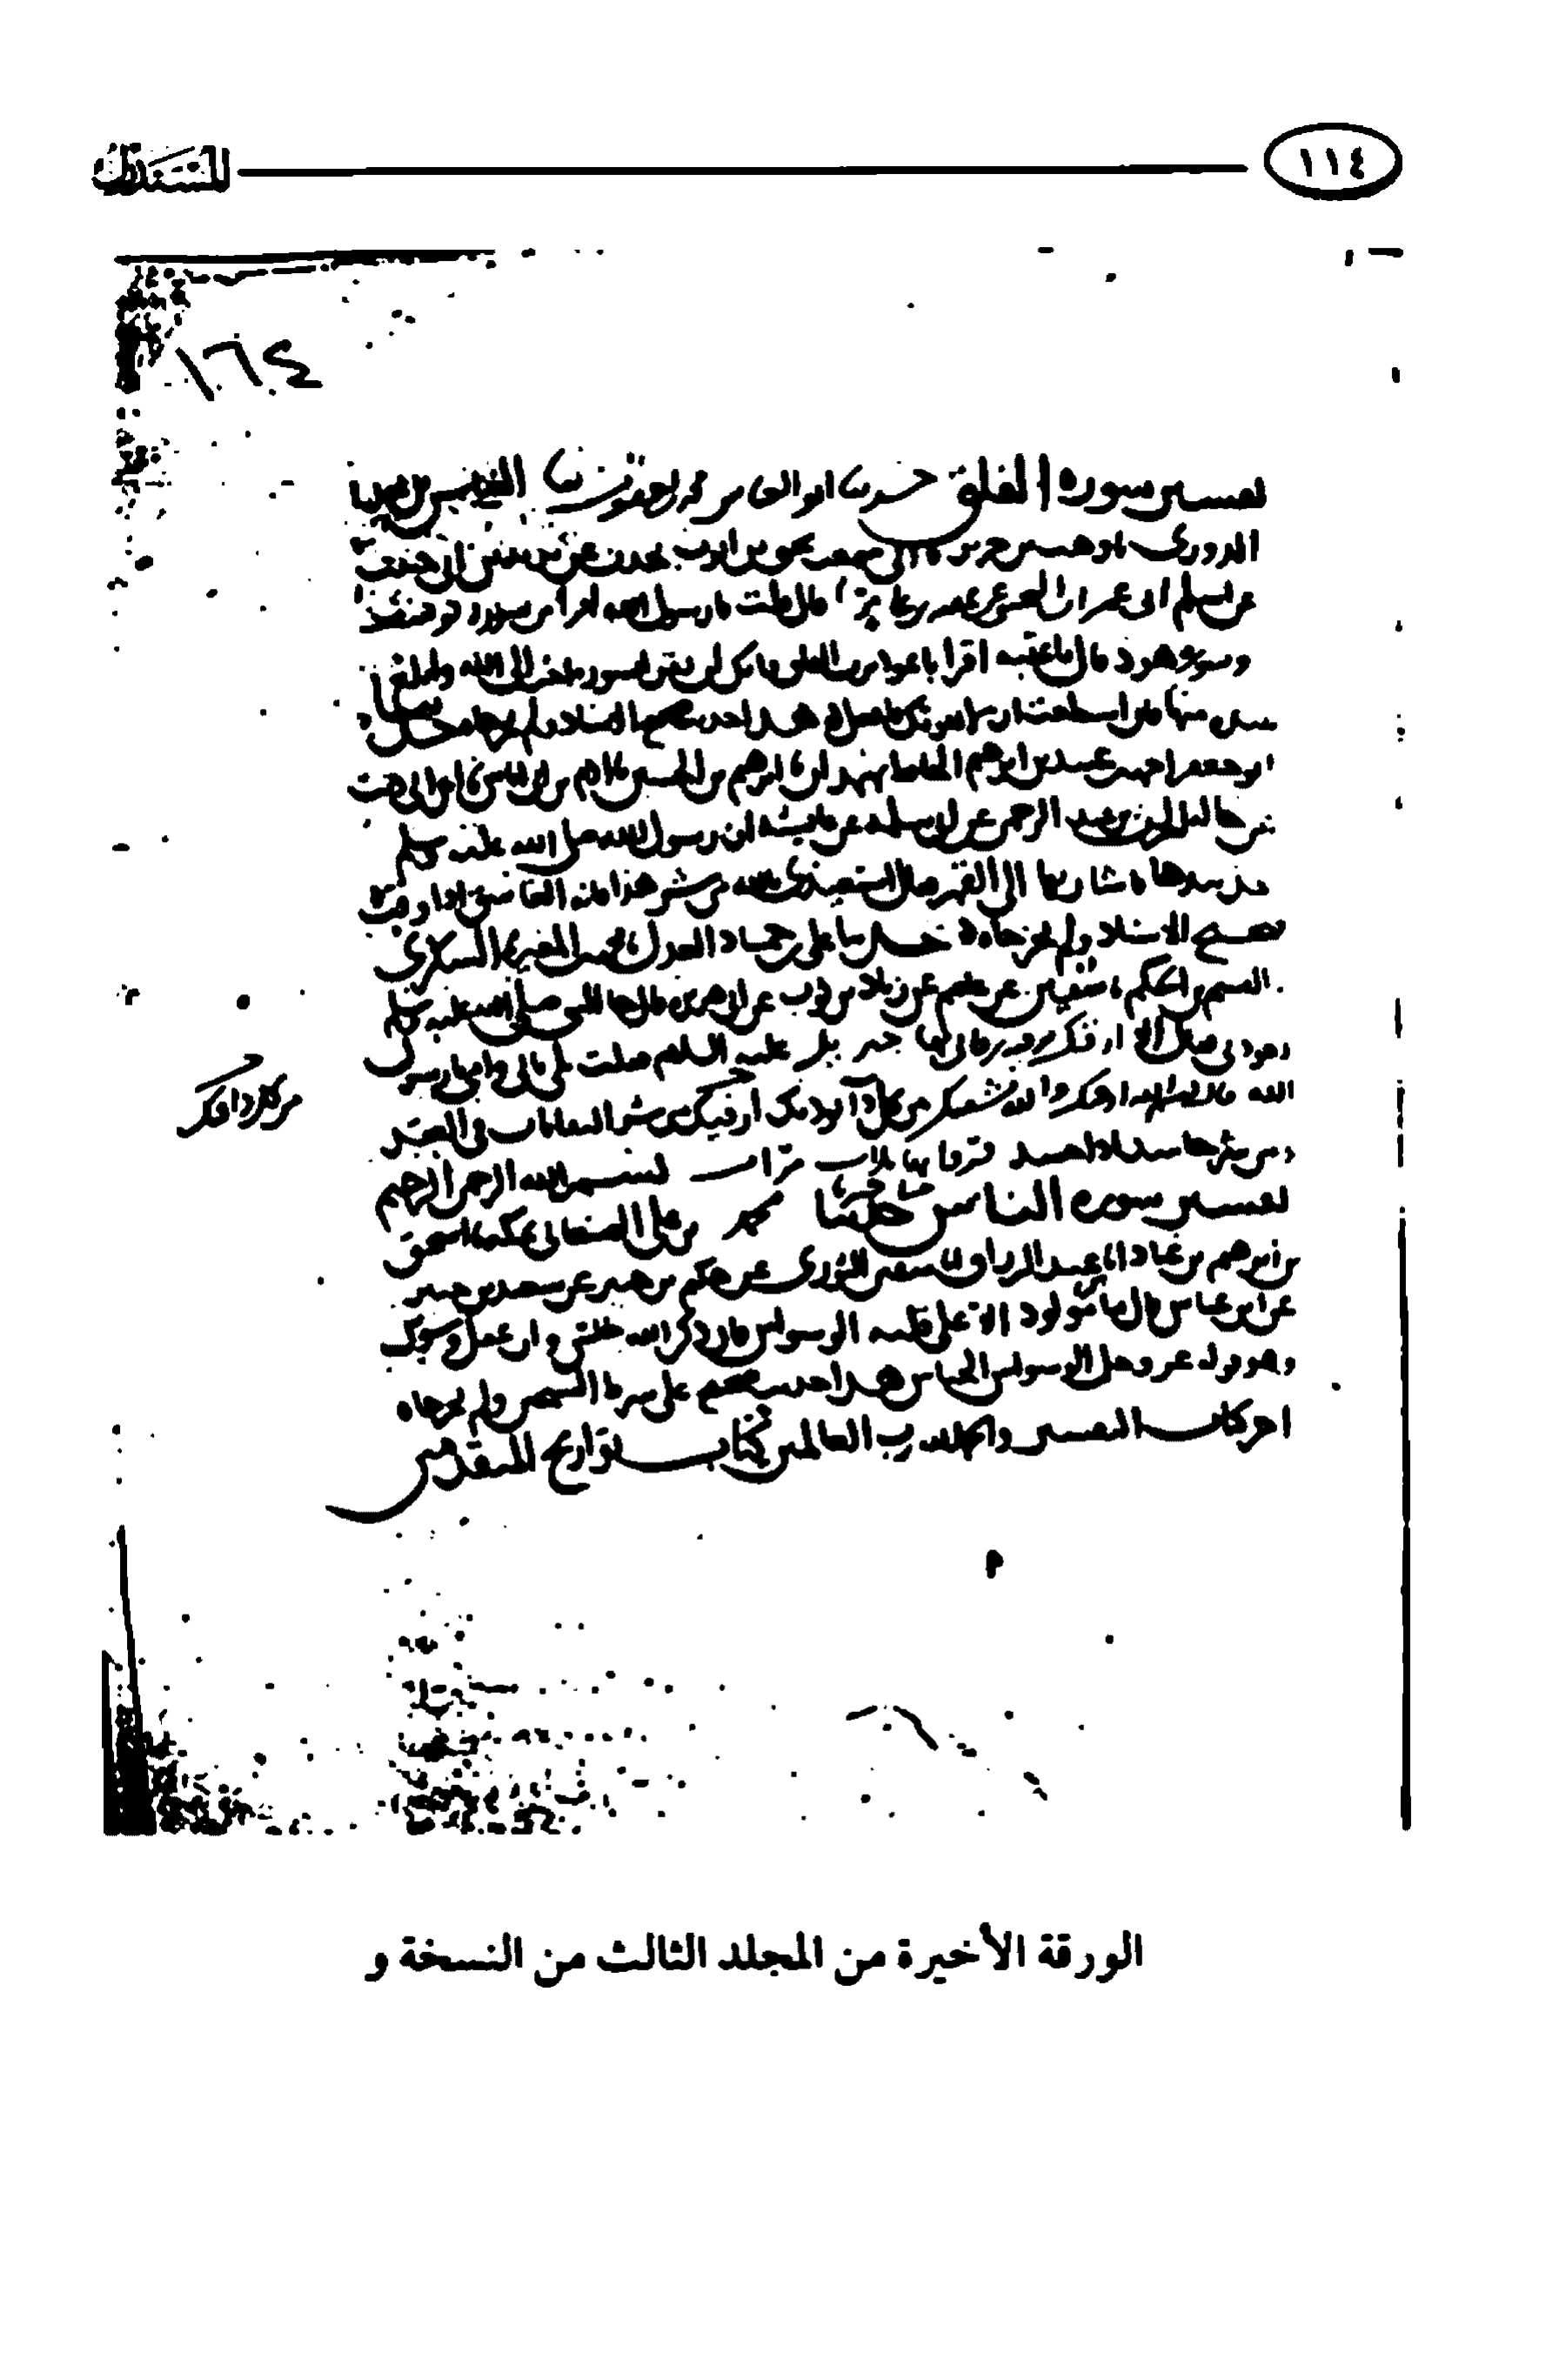 ١١٤
المستدرك
١٦٤
تفسير سورة الفلق حدثنا ابو العباس محمد بن يعقوب ثنا العباس بن محمد
الدوري ثنا وهب بن جرير ثنا ابي سمعت يحيى بن ايوب يحدث عن يزيد بن ابي حبيب
عن اسلم ابي عمران عن عقبة بن عامر قال قلت يا رسول الله اقرا من سورة يوسف
وسورة هود قال يا عقبه اقرا باعوذ برب الفلق فانك لن تقرا بسورة احب الى الله وابلغ
منها فان استطعت ان لا تفوتك فافعل هذا حديث صحيح الاسناد ولم يخرجاه حدثنا
ابو جعفر احمد بن عبيد بن ابرهيم الحافظ بهمدان ثنا ابرهيم بن الحسين ثنا ادم بن ابي اياس ثنا ابن ابي ذئب
عن خاله الحرث بن عبد الرحمن عن ابي سلمه عن عائشه ان رسول الله صلى الله عليه وسلم
اخذ بيدها فاشار بها الى القمر فقال استعيذي بالله من شر هذا فانه الغاسق اذا وقب
صحيح الاسناد ولم يخرجاه حدثنا علي بن حمشاد العدل ثنا محمد بن المغيرة السكري
ثنا القسم بن الحكم ثنا سفين عن عاصم عن زياد بن ثويب عن ابي هريرة قال جا النبي صلى الله عليه وسلم
يعودني فقال الا ارقيك برقيه رقاني بها جبريل عليه السلام فقلت بلى بابي وامي يا رسول
الله قال بسم الله ارقيك والله يشفيك من كل دا فيك
من شر النفاثات في العقد
ومن شر حاسد اذا حسد فرقا بها ثلاث مرات بسم الله الرحمن الرحيم
تفسير سورة الناس حدثنا محمد بن علي الصنعاني بمكه ثنا اسحق
بن ابرهيم بن عباد انا عبد الرزاق انا سفين الثوري عن حكيم بن جبير عن سعيد بن جبير
عن ابن عباس قال ما مولود الا على قلبه الوسواس فان ذكر الله خنس وان غفل وسوس
وهو قوله عز وجل الوسواس الخناس هذا حديث صحيح على شرط الشيخين ولم يخرجاه
اخر كتاب التفسير والحمد لله رب العالمين كتاب تواريخ المتقدمين
الورقة الأخيرة من المجلد الثالث من النسخة و